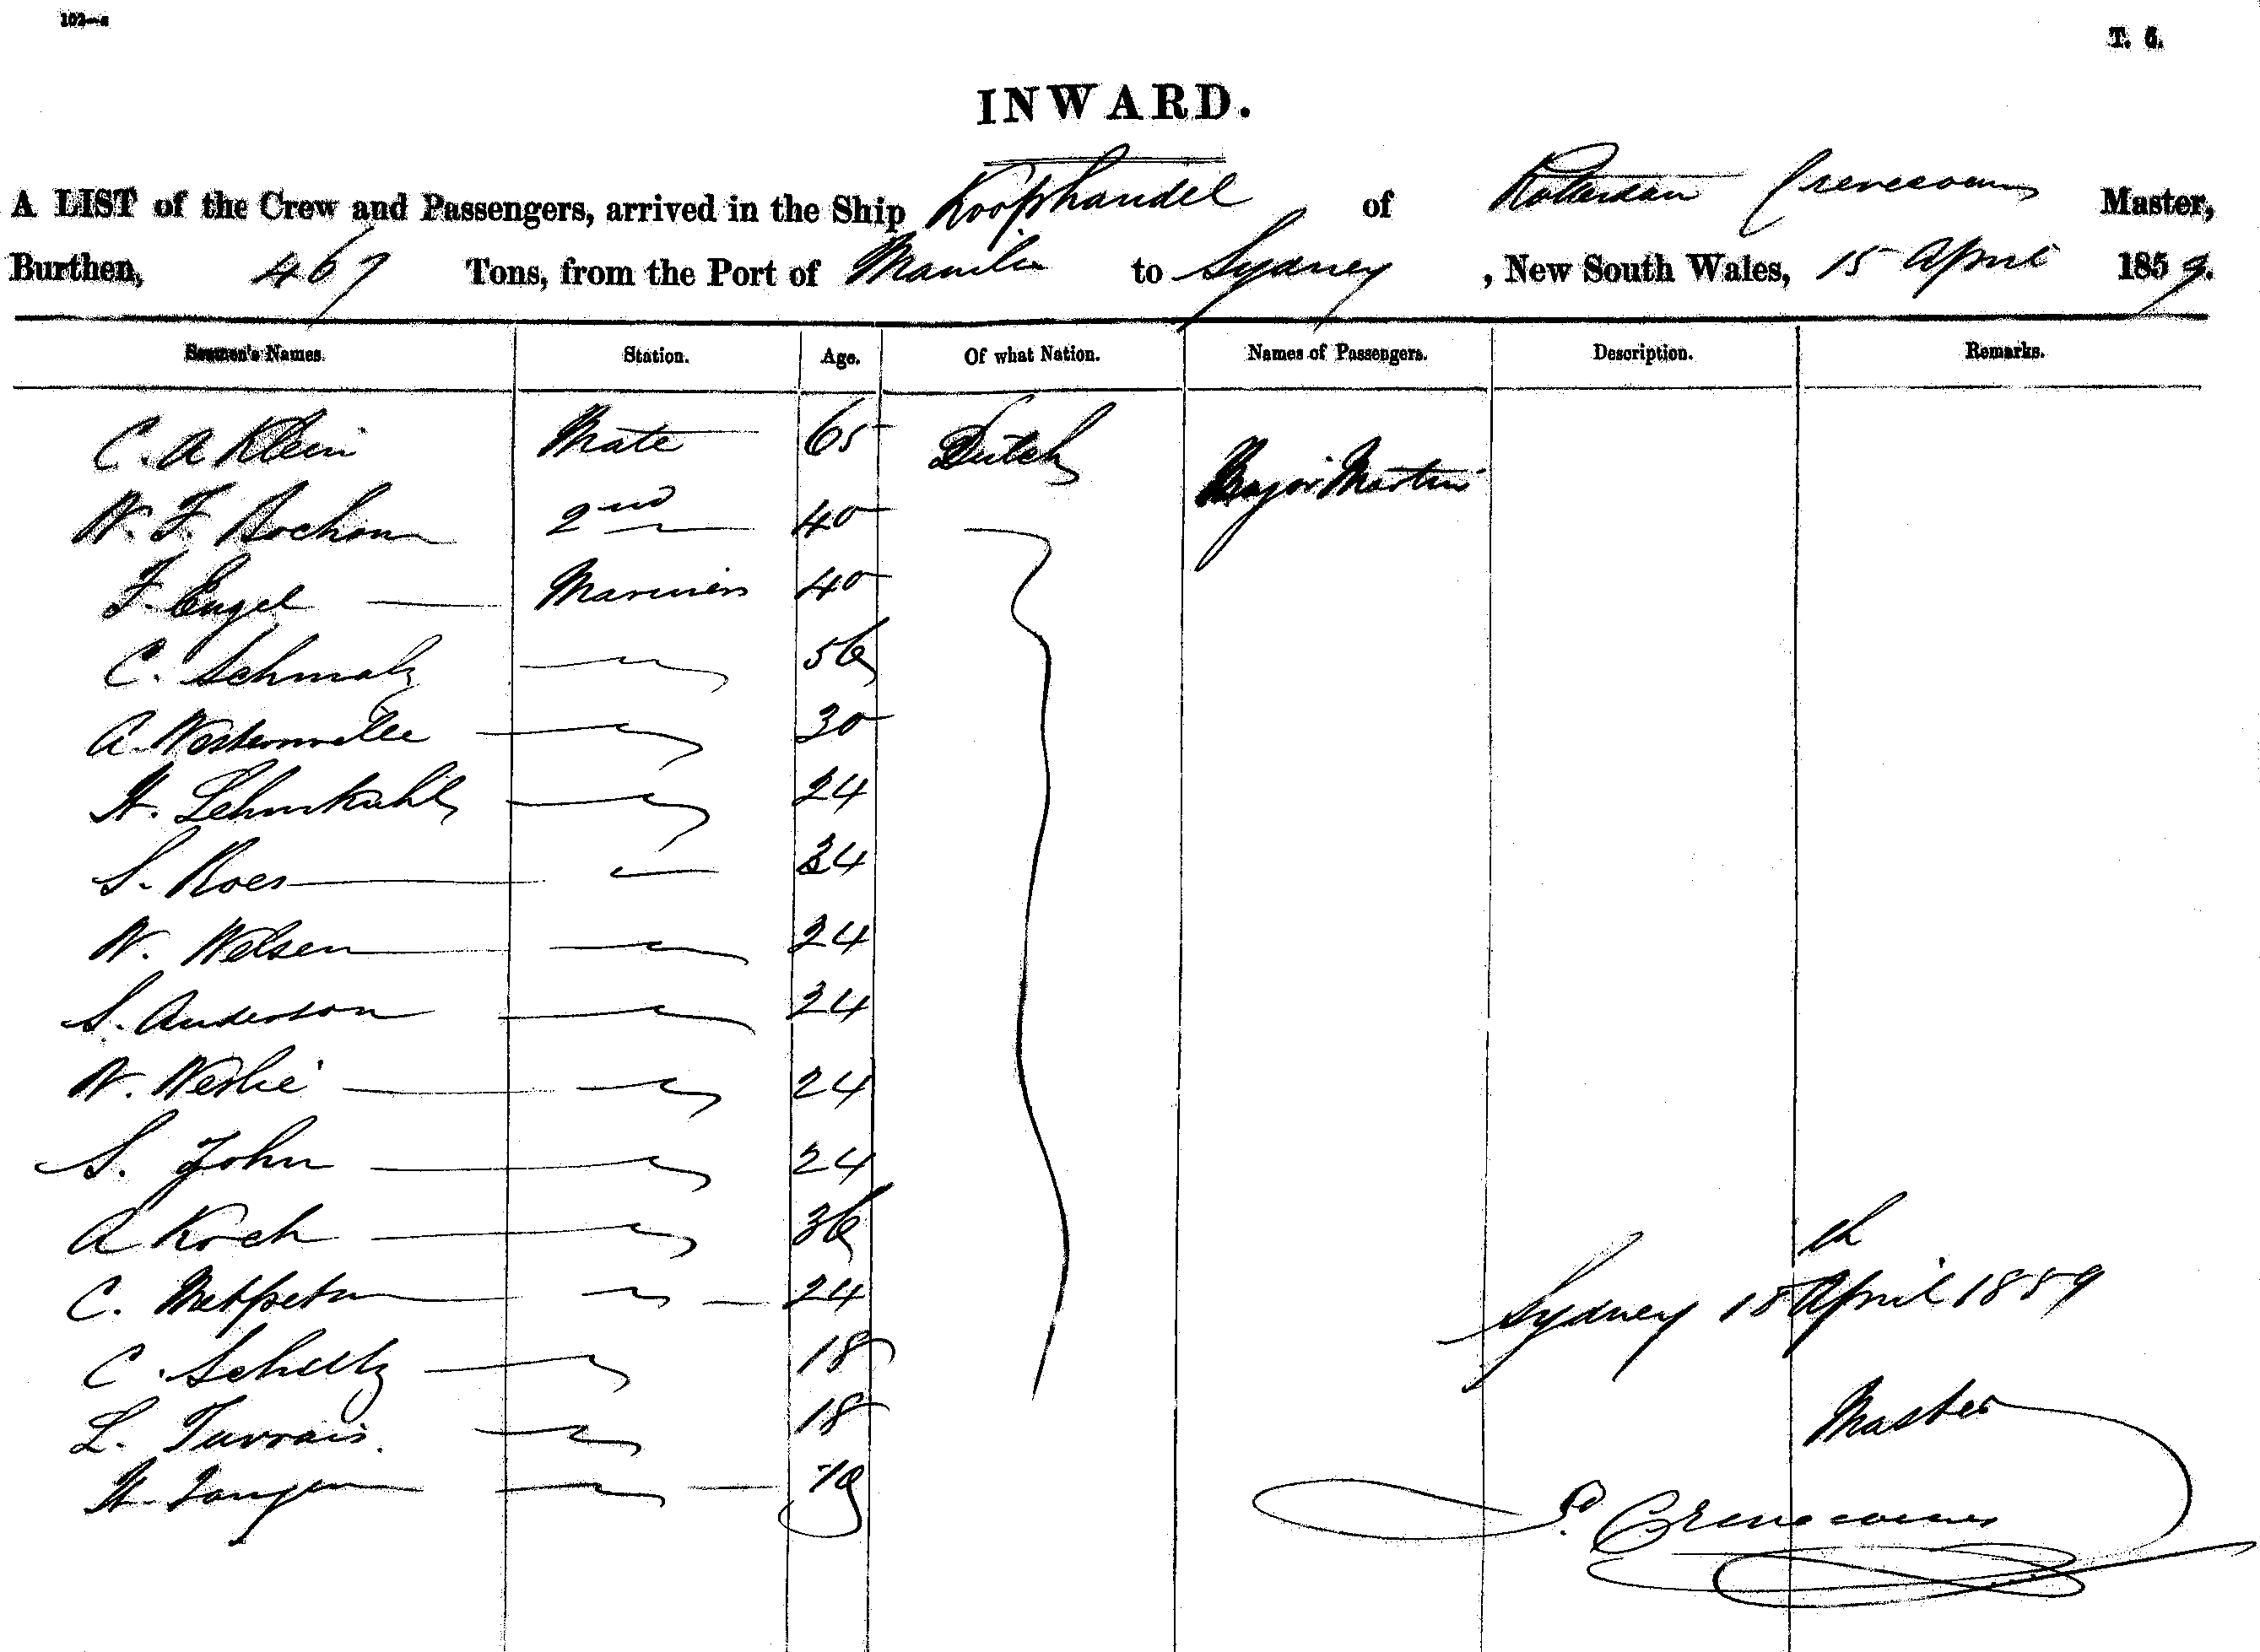 102—a
T. 5.
INWARD.
A LIST of the Crew and Passengers, arrived in the Ship Koophandel of Rotterdam Crevecoeur Master,
Burthen, 467 Tons, from the Port of Manila to Sydney, New South Wales, 15 April 1859.
Seamen's Names. Station. Age. Of what Nation. Names of Passengers. Description. Remarks.
C. A Klein Mate 65 Dutch Major Martin
W. F. Bochom 2nd 40
F. Engel Mariners 40
C. Schmalz 56
A. 30
H. Lehmkuhl 24
S. Roes 24
W. Welsen 24
S. Anderson 24
W. 24
S. John 24
A Koch 36
C. 24
C. Schultz 18
L. 18
H. 18
Sydney 18th April 1859
Master
Crevecoeur